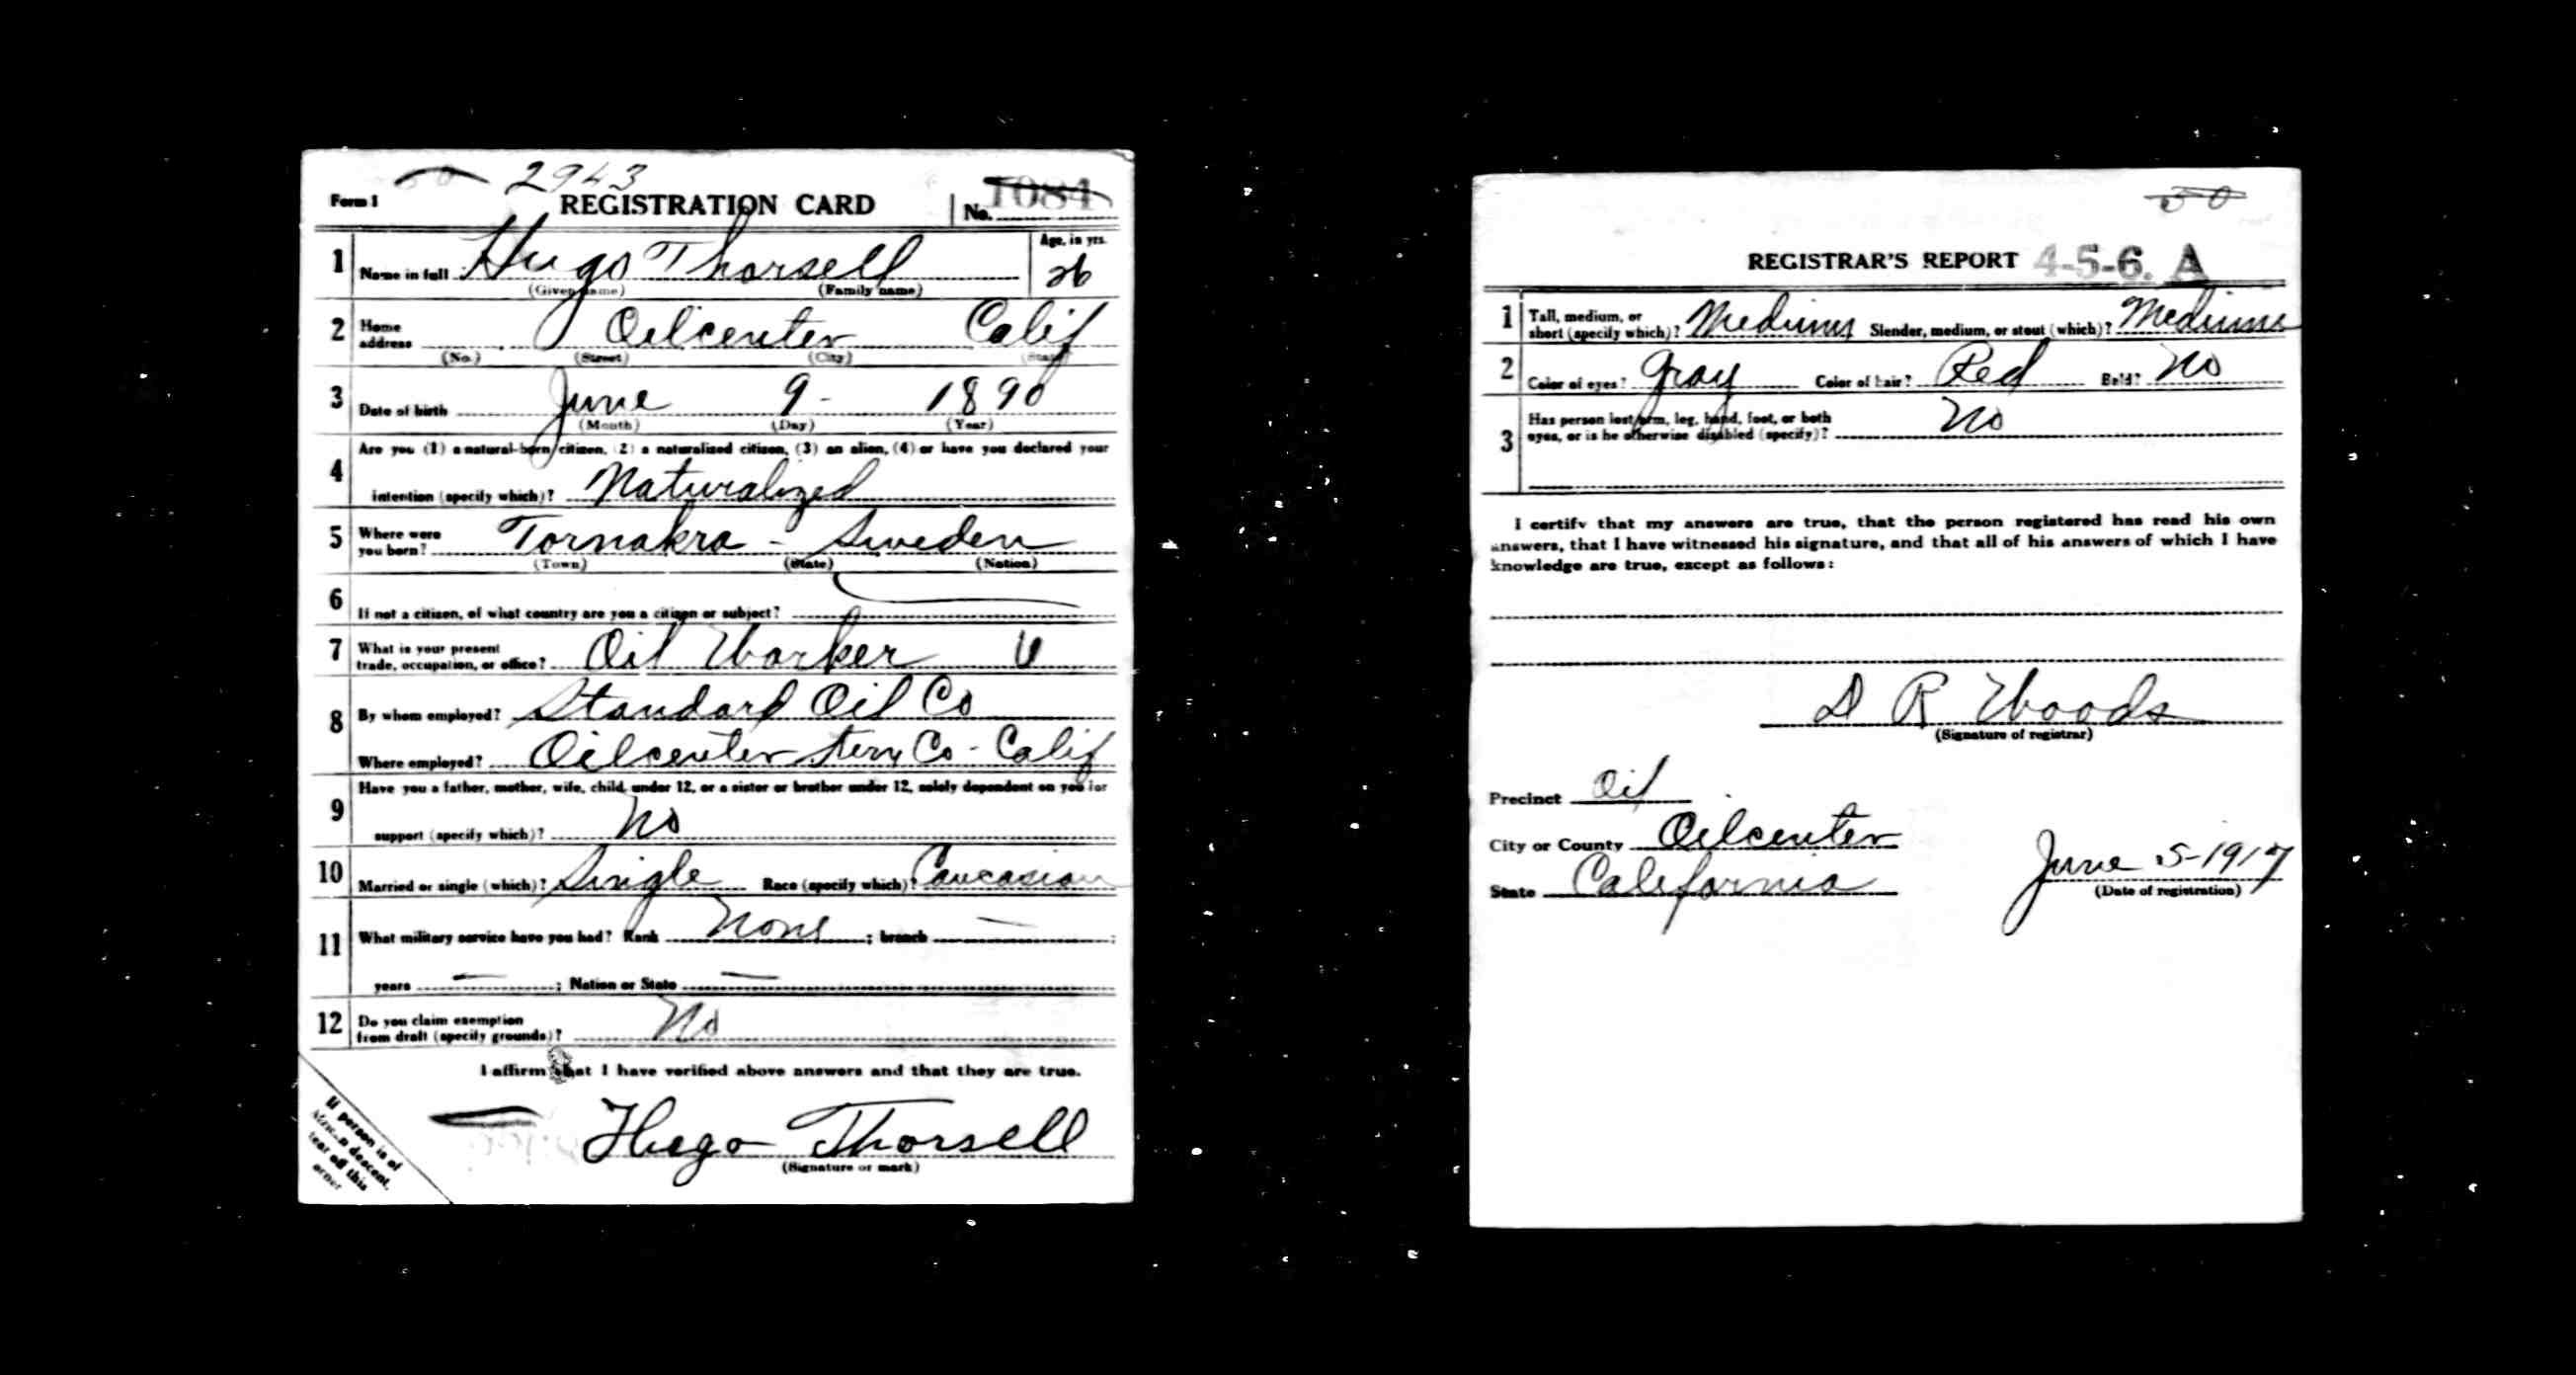 2943
Form 1 REGISTRATION CARD No. 1084
1 Name in full Hugo Thorsell Age, in yrs. 26
(Given name) (Family name)
2 Home address Oilcenter Calif
(No.) (Street) (City) (State)
3 Date of birth June 9 - 1890
(Month) (Day) (Year)
4 Are you (1) a natural-born citizen, (2) a naturalized citizen, (3) an alien, (4) or have you declared your
intention (specify which)? Naturalized
5 Where were you born? Tornakra - Sweden
(Town) (State) (Nation)
6 If not a citizen, of what country are you a citizen or subject?
7 What is your present trade, occupation, or office? Oil Worker
8 By whom employed? Standard Oil Co
Where employed? Oilcenter Kern Co - Calif
9 Have you a father, mother, wife, child under 12, or a sister or brother under 12, solely dependent on you for
support (specify which)? No
10 Married or single (which)? Single Race (specify which)? Caucasian
11 What military service have you had? Rank None ; branch — ;
years — ; Nation or State —
12 Do you claim exemption from draft (specify grounds)? No
I affirm that I have verified above answers and that they are true.
Hugo Thorsell
(Signature or mark)
If person is of
descent,
tear off this
corner
30
REGISTRAR'S REPORT 4-5-6. A
1 Tall, medium, or short (specify which)? Medium Slender, medium, or stout (which)? Medium
2 Color of eyes? Gray Color of hair? Red Bald? No
3 Has person lost arm, leg, hand, foot, or both
eyes, or is he otherwise disabled (specify)? No
I certify that my answers are true, that the person registered has read his own
answers, that I have witnessed his signature, and that all of his answers of which I have
knowledge are true, except as follows:
D R Woods
(Signature of registrar)
Precinct Oil
City or County Oilcenter
State California June 5-1917
(Date of registration)